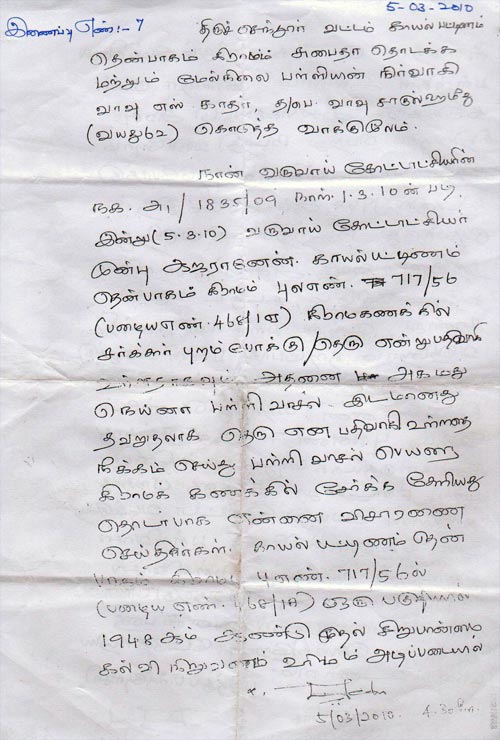 5-03-2010
இணைப்பு எண்:- 7
திருச்செந்தூர் வட்டம் காயல்பட்டிணம்
தென்பாகம் கிராமம் சுபைதா தொடக்க
மற்றும் மேல்நிலை பள்ளியின் நிர்வாகி
வாவு எஸ். காதர், த/பெ. வாவு
(வயது 62) கொடுத்த வாக்குமூலம்.
நான் வருவாய் கோட்டாட்சியரின்
ந.க. அ1/1835/09, நாள். 1.3.10ன் படி
இன்று (5.3.10) வருவாய் கோட்டாட்சியர்
முன்பு ஆஜரானேன். காயல்பட்டிணம்
தென்பாகம் கிராமம் புல எண். 717/56
(பழைய எண். 468/1) கிராம கணக்கில்
சர்க்கார் புறம்போக்கு/தெரு என்று பதிவாகி
உள்ளதாகவும். அதனை அகமது
நெய்னா பள்ளி வாசல் இடமானது
தவறுதலாக தெரு என பதிவாகி உள்ளதை
நீக்கம் செய்து பள்ளி வாசல் பெயரை
கிராமக் கணக்கில் சேர்க்க கோரியது
தொடர்பாக என்னை விசாரணை
செய்தீர்கள். காயல்பட்டிணம் தென்
பாகம் கிராமம் பு எண். 717/56ல்
(பழைய எண். 468/1) ஒரு பகுதியில்
1948 ஆம் ஆண்டு முதல் சிறுபான்மை
கல்வி நிறுவனம் உரிமம் அடிப்படையில்
5/03/2010. 4.30